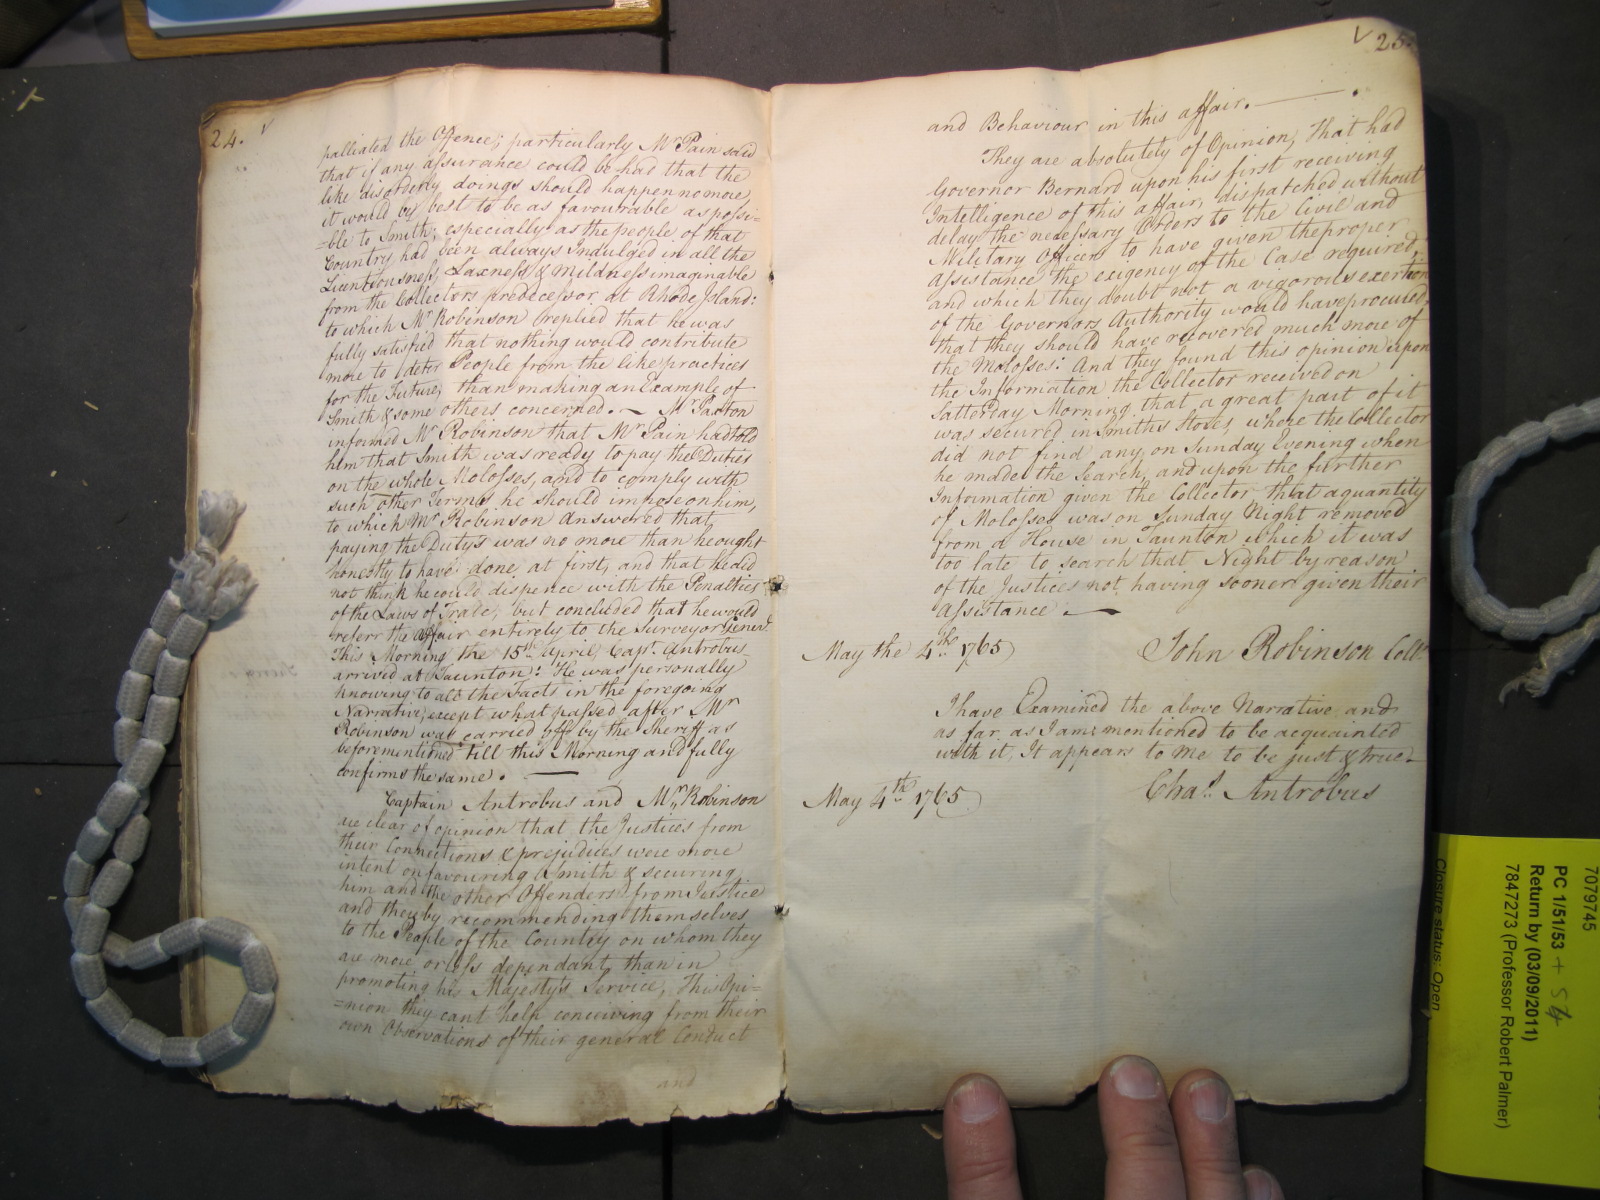 24.
palliated the Offence; particularly Mr. Pain said
that if any assurance could be had that the
like disorderly doings should happen no more,
it would be best to be as favourable as possi=
=ble to Smith; especially as the people of that
Country had been always Indulged in all the
Licentiousness, Laxness & mildness imaginable
from the Collectors predecessor at Rhode Island:
to which Mr. Robinson replied that he was
fully satisfied that nothing would contribute
more to deter People from the like practices
for the Future, than making an Example of
Smith & some others concerned. ~ Mr. Paxton
informed Mr. Robinson that Mr. Pain had told
him that Smith was ready to pay the Duties
on the whole Molosses, and to comply with
such other Terms he should impose on him,
to which Mr. Robinson answered that,
paying the Dutys was no more than he ought
honestly to have done at first, and that he did
not think he could dispence with the Penalties
of the Laws of Trade; but concluded that he would
referr the affair entirely to the Surveyor General
This Morning the 15th. April, Capt. Antrobus
arrived at Taunton: He was personally
knowing to all the Facts in the foregoing
Narrative, except what passed after Mr
Robinson was carried off by the Sheriff as
beforementioned till this Morning and fully
confirms the same. —
Captain Antrobus and Mr. Robinson
are clear of opinion that the Justices from
their Connections & prejudices were more
intent on favouring Smith & securing
him and the other Offenders from Justice
and thereby recommending themselves
to the People of the Country on whom they
are more or less dependant, than in
promoting his Majesty's Service, This Opi=
=nion they cant help conceiving from their
own Observations of their general Conduct
and
25.
and Behaviour in this affair. —
They are absolutely of Opinion, That had
Governor Bernard upon his first receiving
Intelligence of this affair, dispatched without
delay the necessary Orders to the Civil and
Military Officers to have given the proper
Assistance the exigency of the Case required,
and which they doubt not a vigorous exertion
of the Governors Authority would have procured,
that they should have recovered much more of
the Molosses: And they found this opinion upon
the Information the Collector received on
Satterday Morning that a great part of it
was secured in Smiths Stores, where the Collector
did not find any, on Sunday Evening when
he made the Search, and upon the further
Information given the Collector that a quantity
of Molosses was on Sunday Night removed
from a House in Taunton which it was
too late to search that Night by reason
of the Justices not having sooner given their
Assistance. —
May the 4th. 1765
John Robinson Collr.
I have Examined the above Narrative and
as far as I am mentioned to be acquainted
with it, It appears to me to be just & true.
May 4th. 1765
Chas. Antrobus
7079745
PC 1/51/53 + 54
Return by (03/09/2011)
7847273 (Professor Robert Palmer)
Closure status: Open